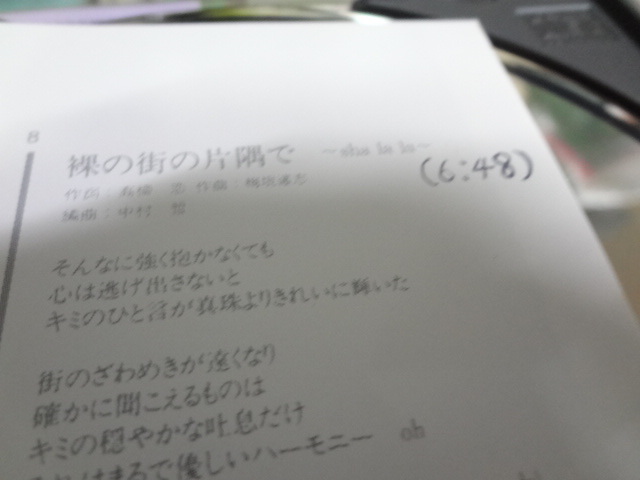 8
裸の街の片隅で ～sha la la～
(6:48)
作詞： 作曲：
編曲：中村
そんなに強く抱かなくても
心は逃げ出さないと
キミのひと言が真珠よりきれいに輝いた
街のざわめきが遠くなり
確かに聞こえるものは
キミの穏やかな吐息だけ
まるで優しいハーモニー oh